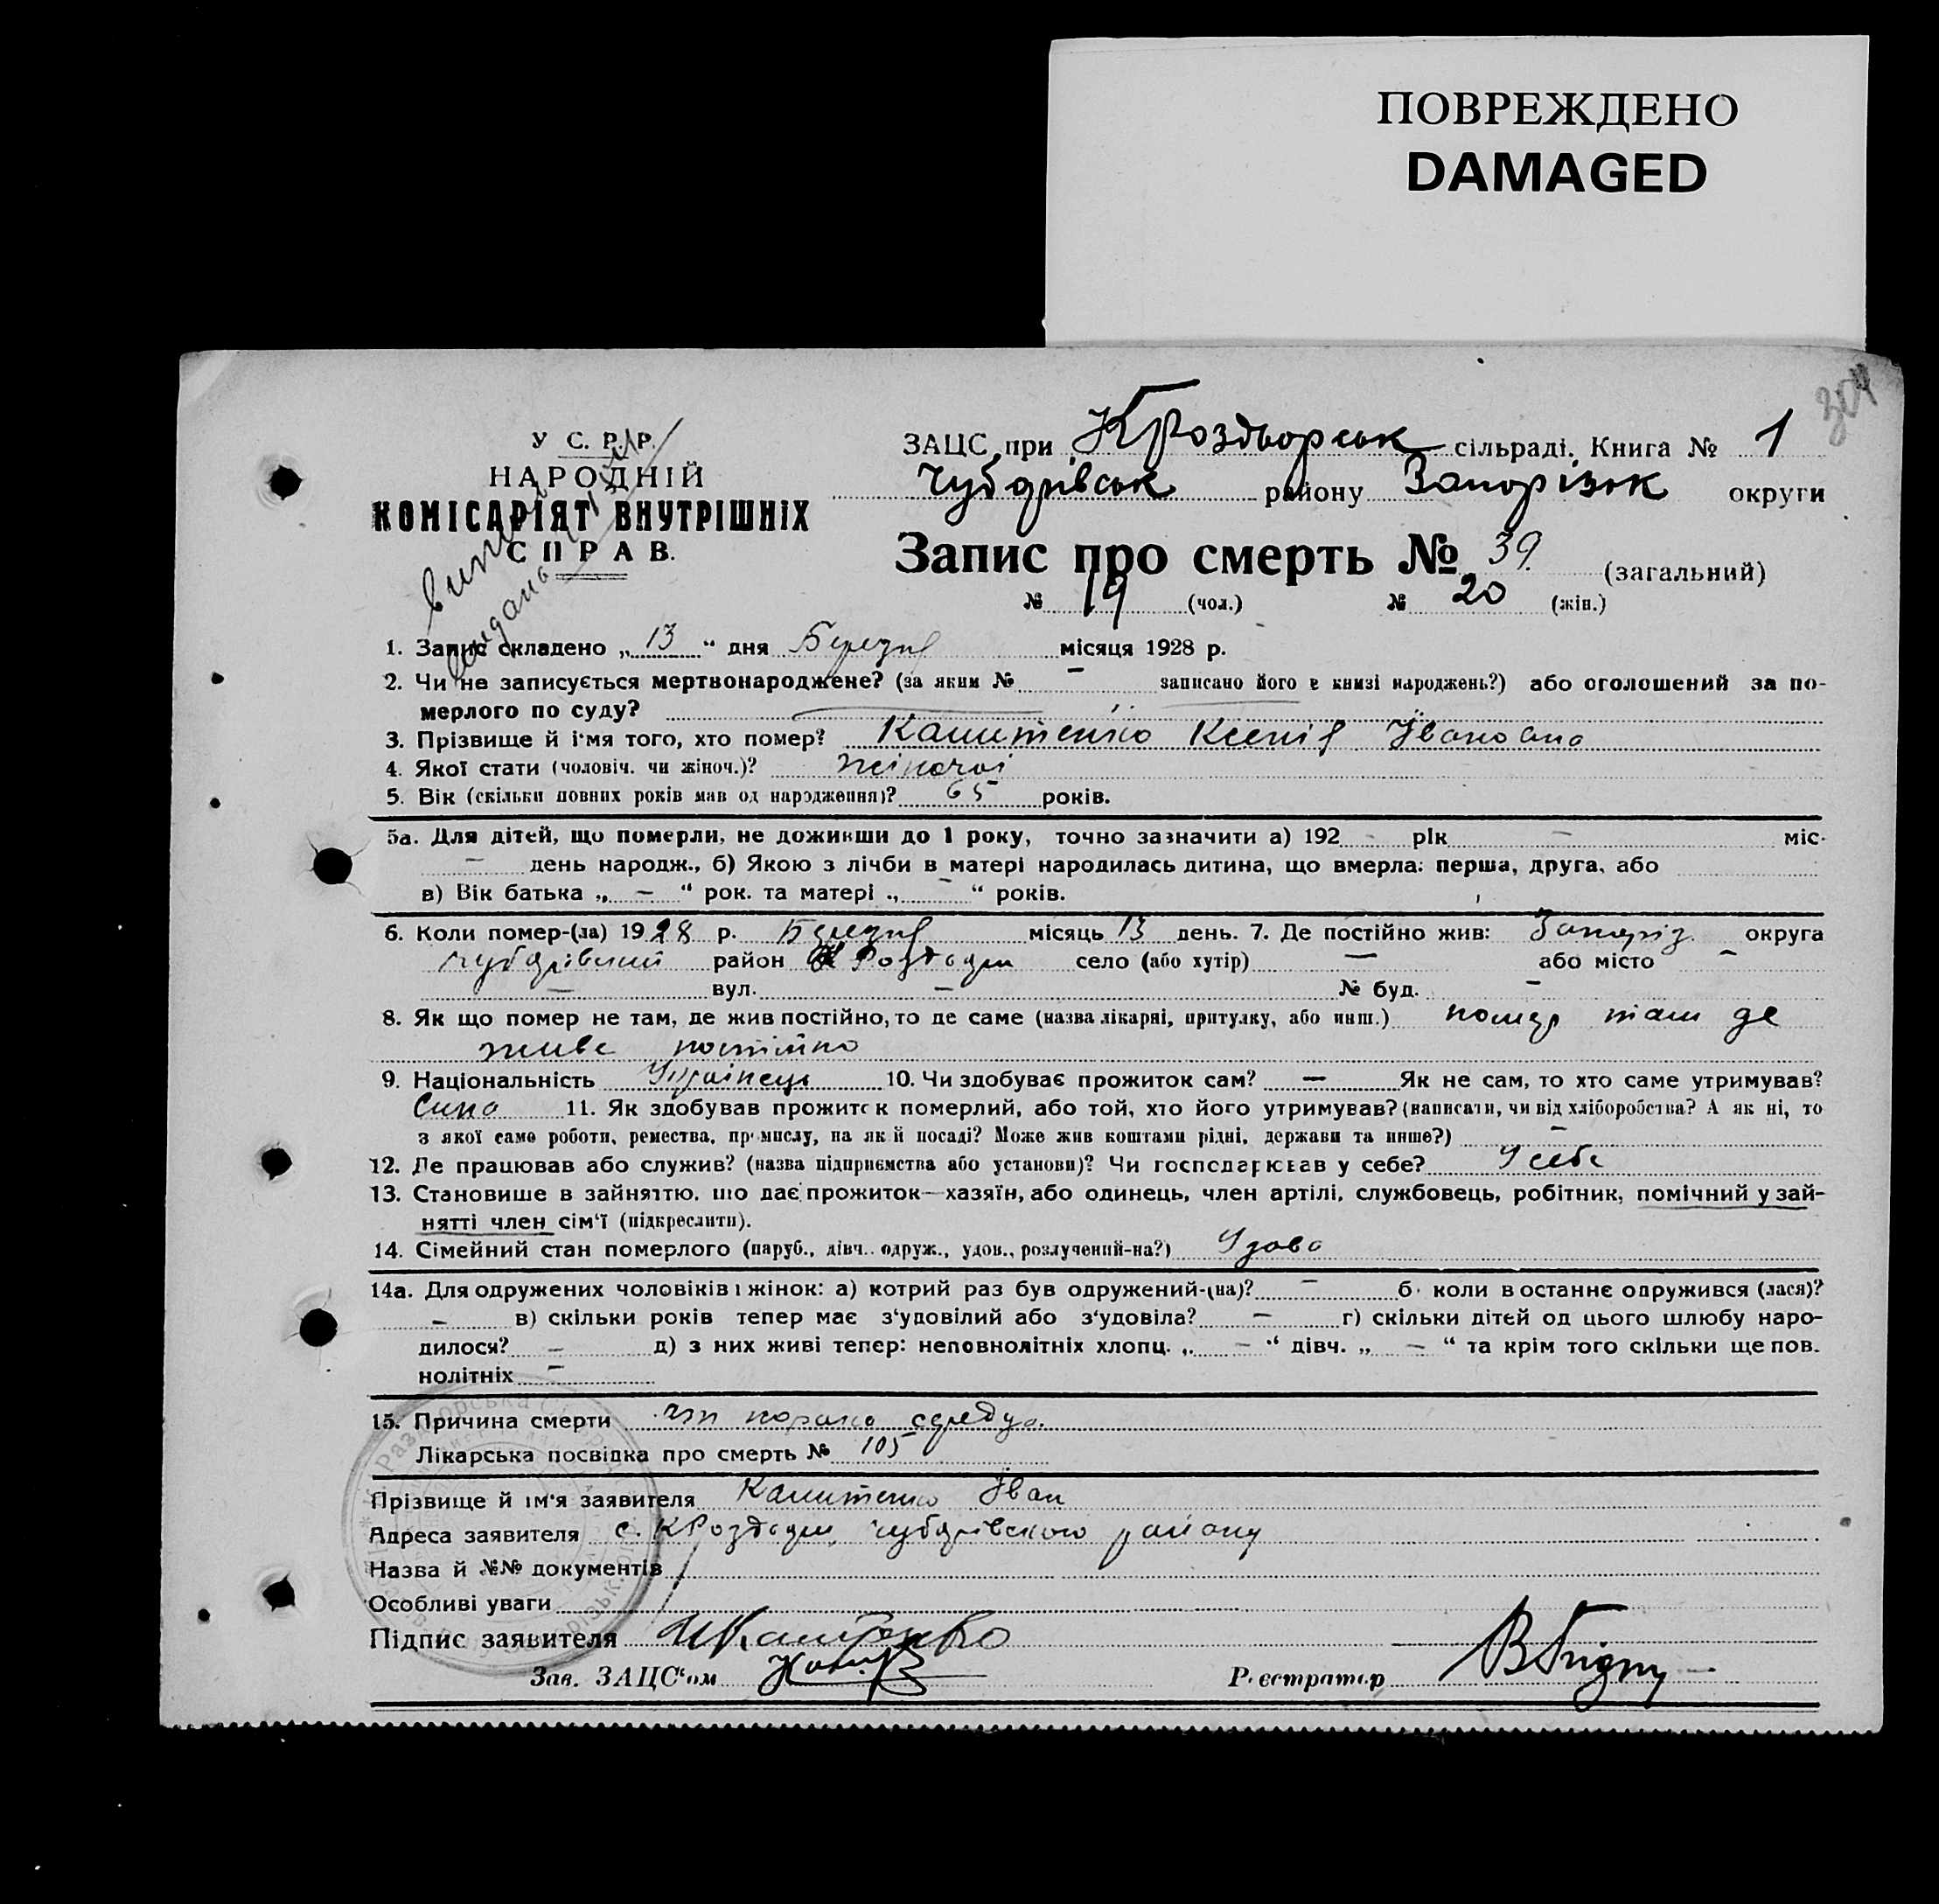 ПОВРЕЖДЕНО
DAMAGED
304
У С. Р. Р.
НАРОДНІЙ
КОМІСАРІЯТ ВНУТРІШНІХ
СПРАВ.
ЗАЦС при КРоздорськ сільраді. Книга № 1
Чубарівськ району Запорізьк округи
Запис про смерть № 39. (загальний)
№ 19 (чол.) № 20 (жін.)
1. Запис складено „ 13 “ дня Березня місяця 1928 р.
2. Чи не записується мертвонароджене? (за яким № – записано його в книзі народжень?) або оголошений за по-
мерлого по суду?
3. Прізвище й і'мя того, хто помер? Камитенко Ксенія Івановна
4. Якої стати (чоловіч. чи жіноч.)? жіночої
5. Вік (скільки повних років мав од народження)? 65 років.
5а. Для дітей, що померли, не доживши до 1 року, точно зазначити а) 192 - рік – міс.
– день народж., б) Якою з лічби в матері народилась дитина, що вмерла: перша, друга, або
в) Вік батька „ – “ рок. та матері „ – “ років.
6. Коли помер-(ла) 1928 р. Березня місяць 13 день. 7. Де постійно жив: Запоріз. округа
Чубарівский район К Роздори село (або хутір) – або місто –
– вул. – № буд. –
8. Як що помер не там, де жив постійно, то де саме (назва лікарні, притулку, або инш.) помер там де
живе постійно
9. Національність Українець 10. Чи здобуває прожиток сам? – Як не сам, то хто саме утримував?
Сина 11. Як здобував прожиток померлий, або той, хто його утримував? (написати, чи від хліборобства? А як ні, то
з якої саме роботи, ремества, промислу, на якій посаді? Може жив коштами рідні, держави та инше?) –
12. Де працював або служив? (назва підприємства або установи)? Чи господарював у себе? У себе
13. Становище в зайняттю, що дає прожиток—хазяїн, або одинець, член артілі, службовець, робітник, помічний у зай-
нятті член сім'ї (підкреслити).
14. Сімейний стан померлого (паруб., дівч. одруж., удов., розлучений-на?) Удова
14а. Для одружених чоловіків і жінок: а) котрий раз був одружений-(на)? – б. коли в останнє одружився (лася)?
– в) скільки років тепер має з'удовілий або з'удовіла? – г) скільки дітей од цього шлюбу наро-
дилося? – д) з них живі тепер: неповнолітніх хлопц. „ – “ дівч. „ – “ та крім того скільки ще пов.
нолітніх –
15. Причина смерти
Лікарська посвідка про смерть № 105
Прізвище й ім'я заявителя Камитенко Іван
Адреса заявителя с. КРоздори, Чубарівского району
Назва й №№ документів
Особливі уваги
Підпис заявителя ИКамитенко
Зав. ЗАЦС'ом
Реєстратор